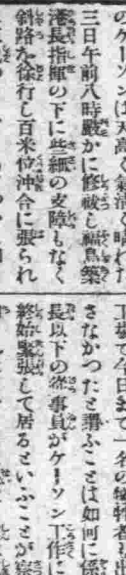 のケーソンは天高く氣清く晴れた
三日午前八時嚴かに修祓し福島築
港長指揮の下に些細の支障もなく
斜路を徐行し百米位沖合に張られ
工場で今日まで一名の犠牲者も出
さなかつたと謂ふことは如何に係
長以下の從事員がケーソン工作に
終始緊張して居るといふことが察